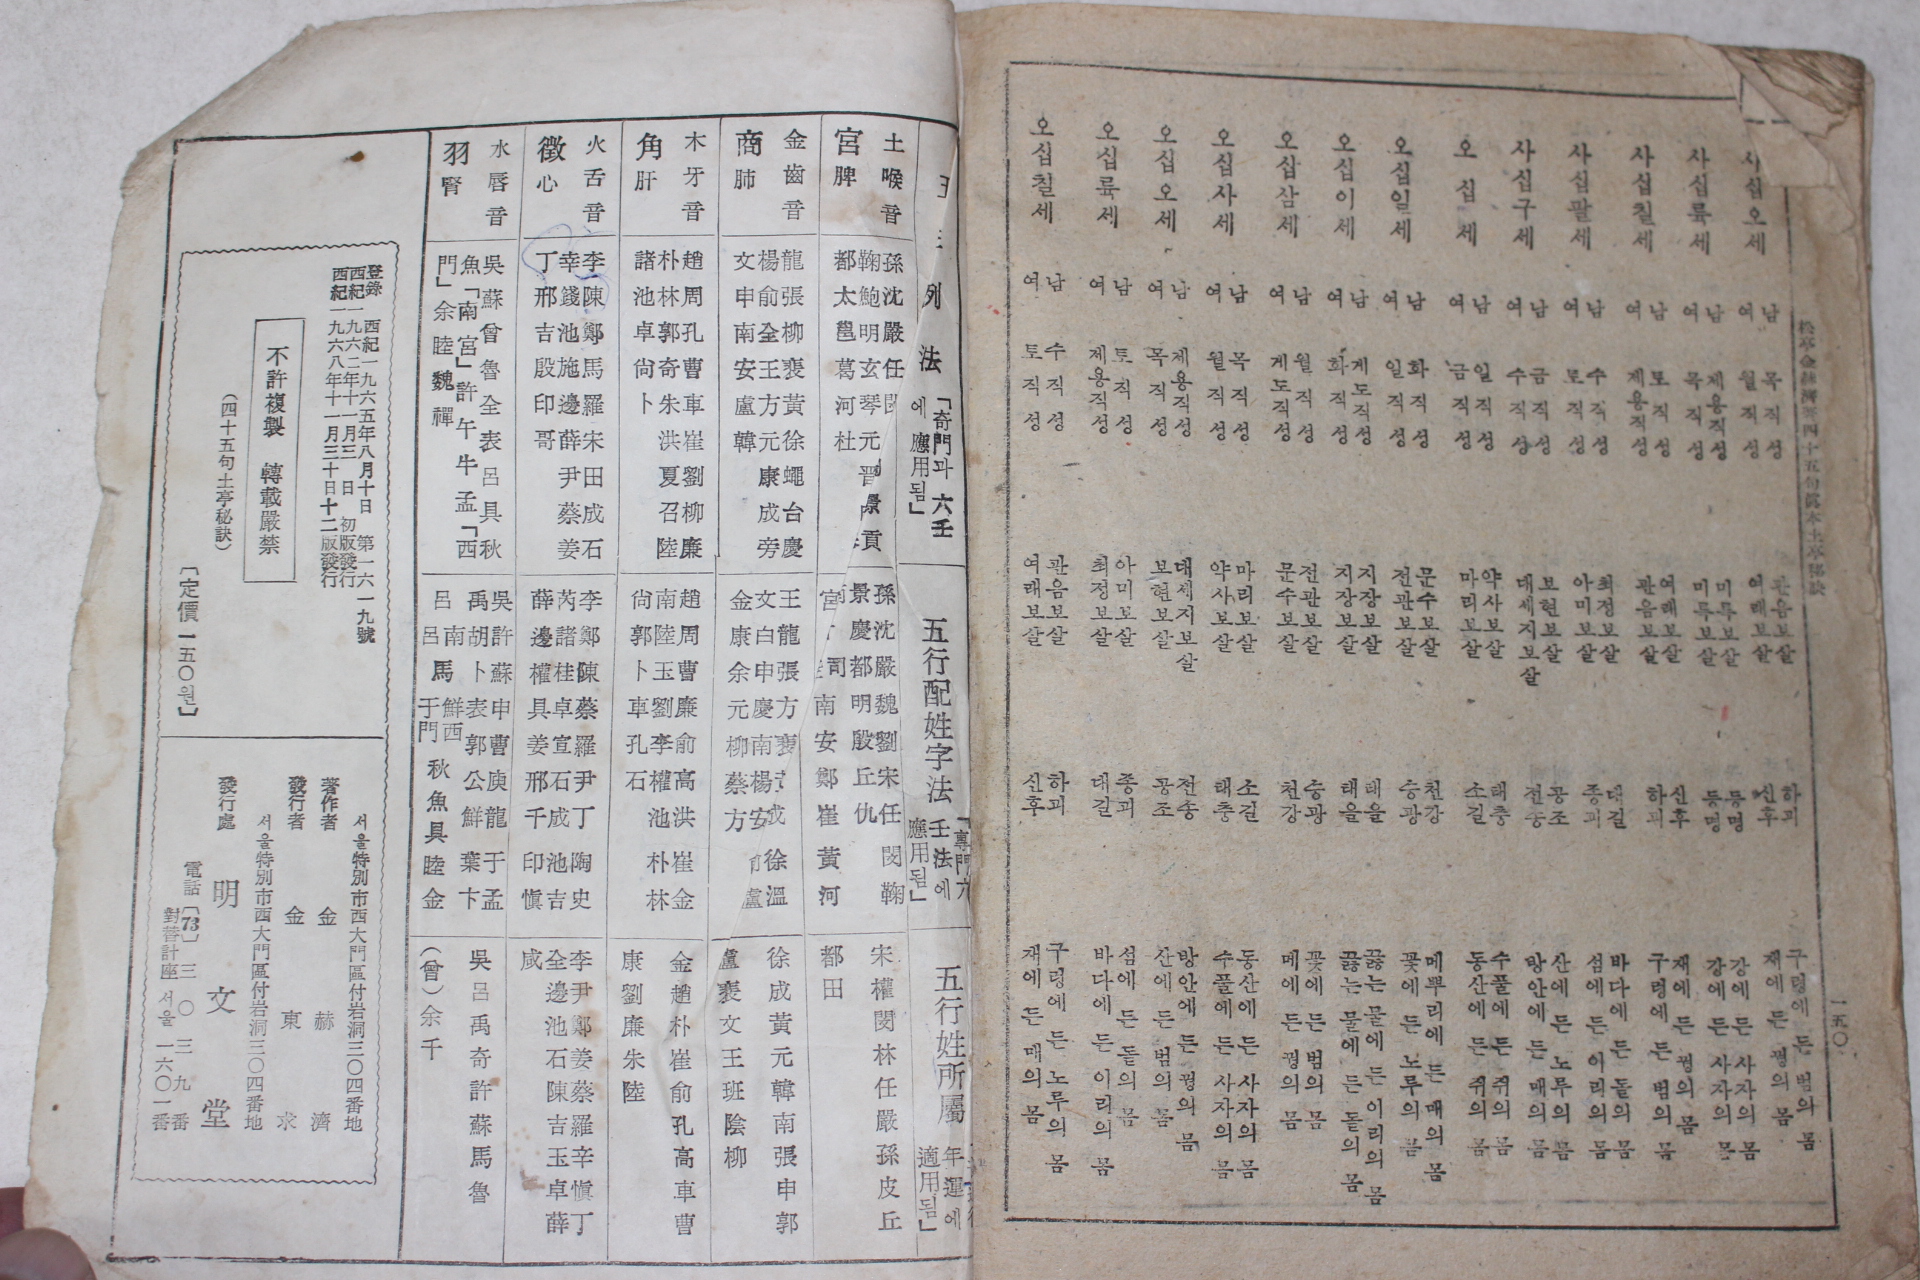 松亭金赫濟著四十五句眞本土亭秘訣
一五〇
사십오세
남 목직성 관음보살 하괴 구렁에 든 범의 몸
여 월직성 여래보살 신후 재에 든 꿩의 몸
사십륙세
남 제용직성 미륵보살 등명 강에 든 사자의 몸
여 목직성 미륵보살 등명 강에 든 사자의 몸
사십칠세
남 토직성 여래보살 신후 재에 든 꿩의 몸
여 제용직성 관음보살 하괴 구렁에 든 범의 몸
사십팔세
남 수직성 최정보살 대길 바다에 든 돝의 몸
여 토직성 아미보살 종괴 섬에 든 이리의 몸
사십구세
남 금직성 보현보살 공조 산에 든 노루의 몸
여 수직상 대세지보살 전송 방안에 든 매의 몸
오십세
남 일직성 약사보살 태충 수풀에 든 쥐의 몸
여 금직성 마리보살 소길 동산에 든 쥐의 몸
오십일세
남 화직성 문수보살 천강 메뿌리에 든 매의 몸
여 일직성 전관보살 승광 꽃에 든 노루의 몸
오십이세
남 계도직성 지장보살 태을 끓는 물에 든 이리의 몸
여 화직성 지장보살 태을 끓는 물에 든 돝의 몸
오삽삼세
남 월직성 전관보살 승광 꽃에 든 범의 몸
여 계도직성 문수보살 천강 메에 든 꿩의 몸
오십사세
남 목직성 마리보살 소길 동산에 든 사자의 몸
여 월직성 약사보살 태충 수풀에 든 사자의 몸
오십오세
남 제용직성 대세지보살 전송 방안에 든 꿩의 몸
여 목직성 보현보살 공조 산에 든 범의 몸
오십륙세
남 토직성 아미보살 종괴 섬에 든 돝의 몸
여 제용직성 최정보살 대길 바다에 든 이리의 몸
오십칠세
남 수직성 관음보살 하괴 구렁에 든 노루의 몸
여 토직성 여래보살 신후 재에 든 매의 몸
列法 「奇門과 六壬에 應用됨」
五行配姓字法 「專門六壬法에 應用됨」
五行姓所屬 年運에 適用됨」
土喉音
宮脾
孫沈嚴任閔
鞠鮑明玄琴元晋景貢
都太邕葛河杜
孫沈嚴魏劉宋任閔鞠
景慶都明殷丘仇
南安鄭崔黃河
宋權閔林任嚴孫皮丘
都田
金齒音
商肺
龍張柳裵黃徐蠅台慶
楊俞全王方元康成旁
文申南安盧韓
王龍張方裵
文白申慶南楊安
金康余元柳蔡方
徐成黃元韓南張申郭
盧裵文王班陰柳
木牙音
角肝
趙周孔曹車崔劉柳廉
朴林郭奇朱洪夏召陸
諸池卓尙卜
趙周曹廉俞高洪崔金
南陸玉劉李權池朴林
尙郭卜車孔石
金趙朴崔俞孔高車曹
康劉廉朱陸
火舌音
徵心
李陳鄭馬羅宋田成石
幸錢池施邊薛尹蔡姜
丁邢吉殷印哥
李鄭陳蔡羅尹丁陶史
芮諸桂卓宣石成池吉
薛邊權具姜邢千印愼
李尹鄭姜蔡羅辛愼丁
全邊池石陳吉玉卓薛
咸
水唇音
羽腎
吳蘇曾魯全表呂具秋
魚「南宮」許午牛孟「西
門」余睦魏禪
吳許蘇申曹庾龍于孟
禹胡卜表郭公鮮葉卞
呂南鮮西
呂馬于門秋魚具睦金
吳呂禹奇許蘇馬魯
(曾)余千
登錄 西紀一九六五年八月十日 第一六一九號
西紀一九六二年十一月三日 初版發行
西紀一九六八年十一月三十日十二版發行
不許複製 轉載嚴禁
(四十五句土亭秘訣)
「定價 一五〇원」
서울特別市西大門區付岩洞三〇四番地
著作者 金赫濟
서울特別市西大門區付岩洞三〇四番地
發行者 金東求
發行處 明文堂
電話「73」三〇三九番
對替計座 서울 一六〇一番